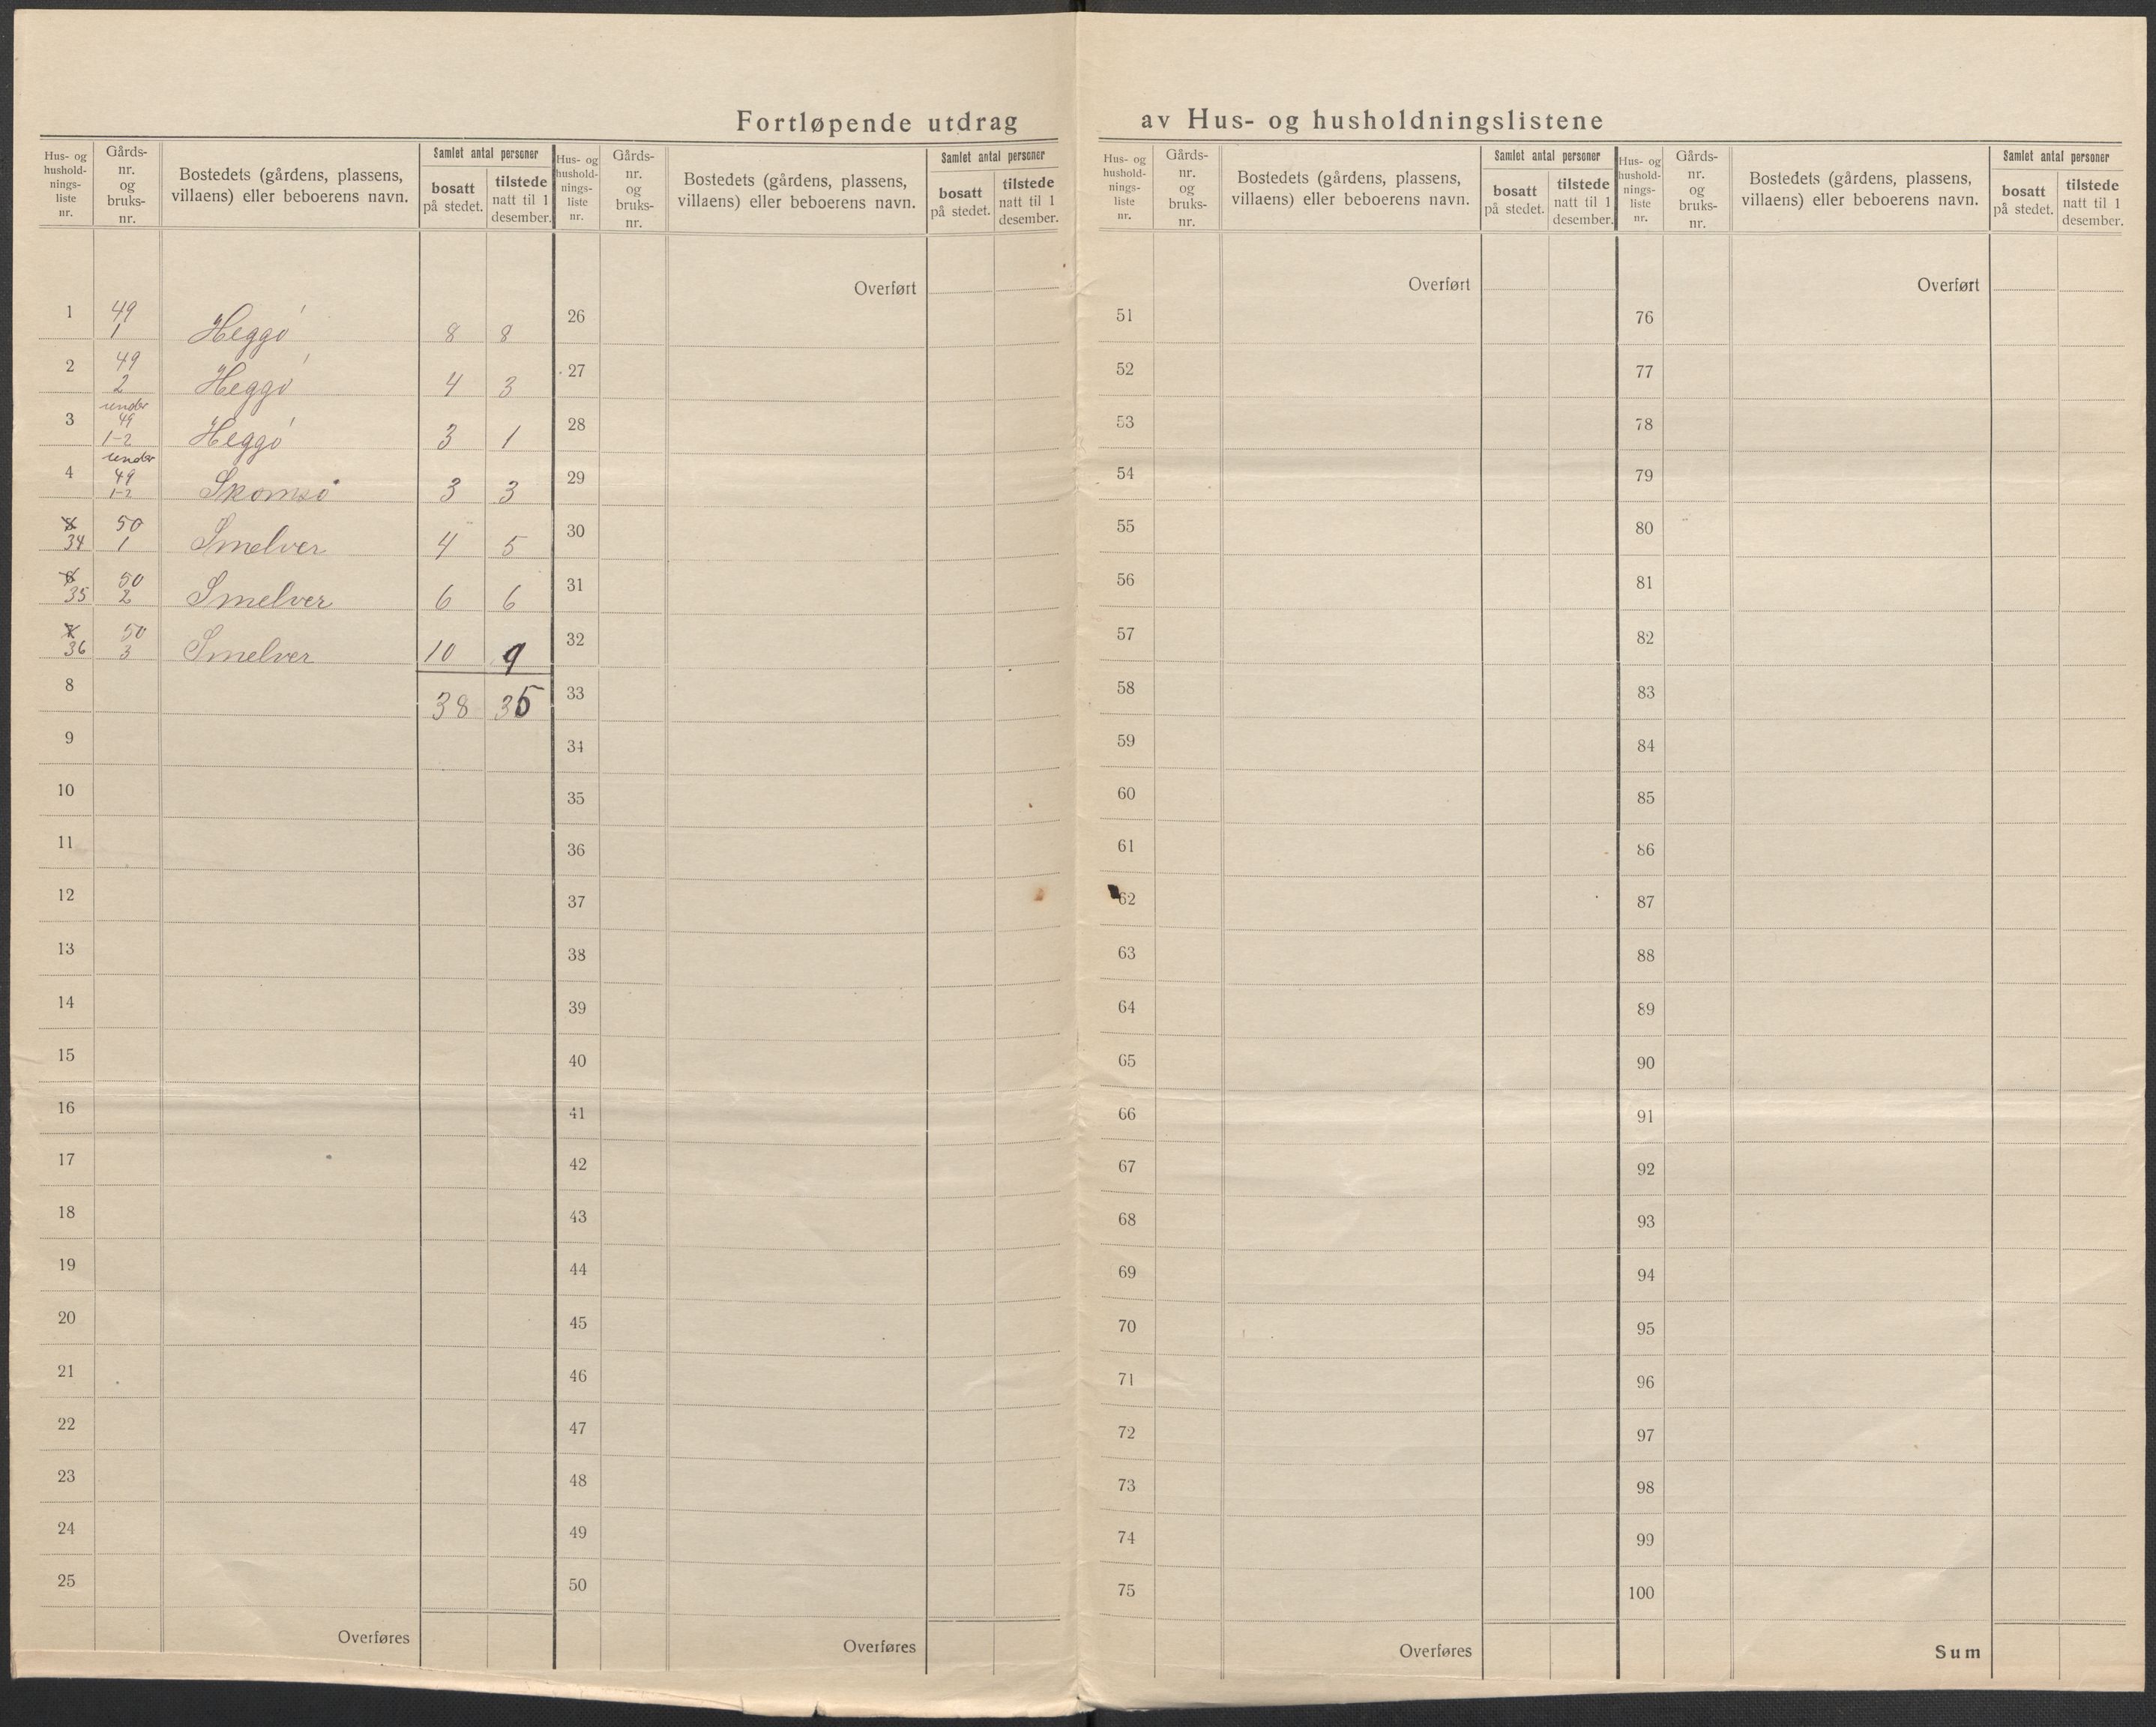 Fortløpende utdrag av Hus- og husholdningslistene
Hus- og hushold- nings- liste nr. | Gårds- nr. og bruks- nr. | Bostedets (gårdens, plassens, villaens) eller beboerens navn. | Samlet antal personer | bosatt på stedet. | tilstede natt til 1 desember.
1 | 49 1 | Heggø | 8 | 8
2 | 49 2 | Heggø | 4 | 3
3 | under 49 1-2 | Heggø | 3 | 1
4 | under 49 1-2 | Skomsø | 3 | 3
5 34 | 50 1 | Smelver | 4 | 5
6 35 | 50 2 | Smelver | 6 | 6
7 36 | 50 3 | Smelver | 10 | 9
8 | 38 | 35
9
10
11
12
13
14
15
16
17
18
19
20
21
22
23
24
25
Overføres
Hus- og hushold- nings- liste nr. | Gårds- nr. og bruks- nr. | Bostedets (gårdens, plassens, villaens) eller beboerens navn. | Samlet antal personer | bosatt på stedet. | tilstede natt til 1 desember.
Overført
26
27
28
29
30
31
32
33
34
35
36
37
38
39
40
41
42
43
44
45
46
47
48
49
50
Overføres
Hus- og hushold- nings- liste nr. | Gårds- nr. og bruks- nr. | Bostedets (gårdens, plassens, villaens) eller beboerens navn. | Samlet antal personer | bosatt på stedet. | tilstede natt til 1 desember.
Overført
51
52
53
54
55
56
57
58
59
60
61
62
63
64
65
66
67
68
69
70
71
72
73
74
75
Overføres
Hus- og hushold- nings- liste nr. | Gårds- nr. og bruks- nr. | Bostedets (gårdens, plassens, villaens) eller beboerens navn. | Samlet antal personer | bosatt på stedet. | tilstede natt til 1 desember.
Overført
76
77
78
79
80
81
82
83
84
85
86
87
88
89
90
91
92
93
94
95
96
97
98
99
100
Sum